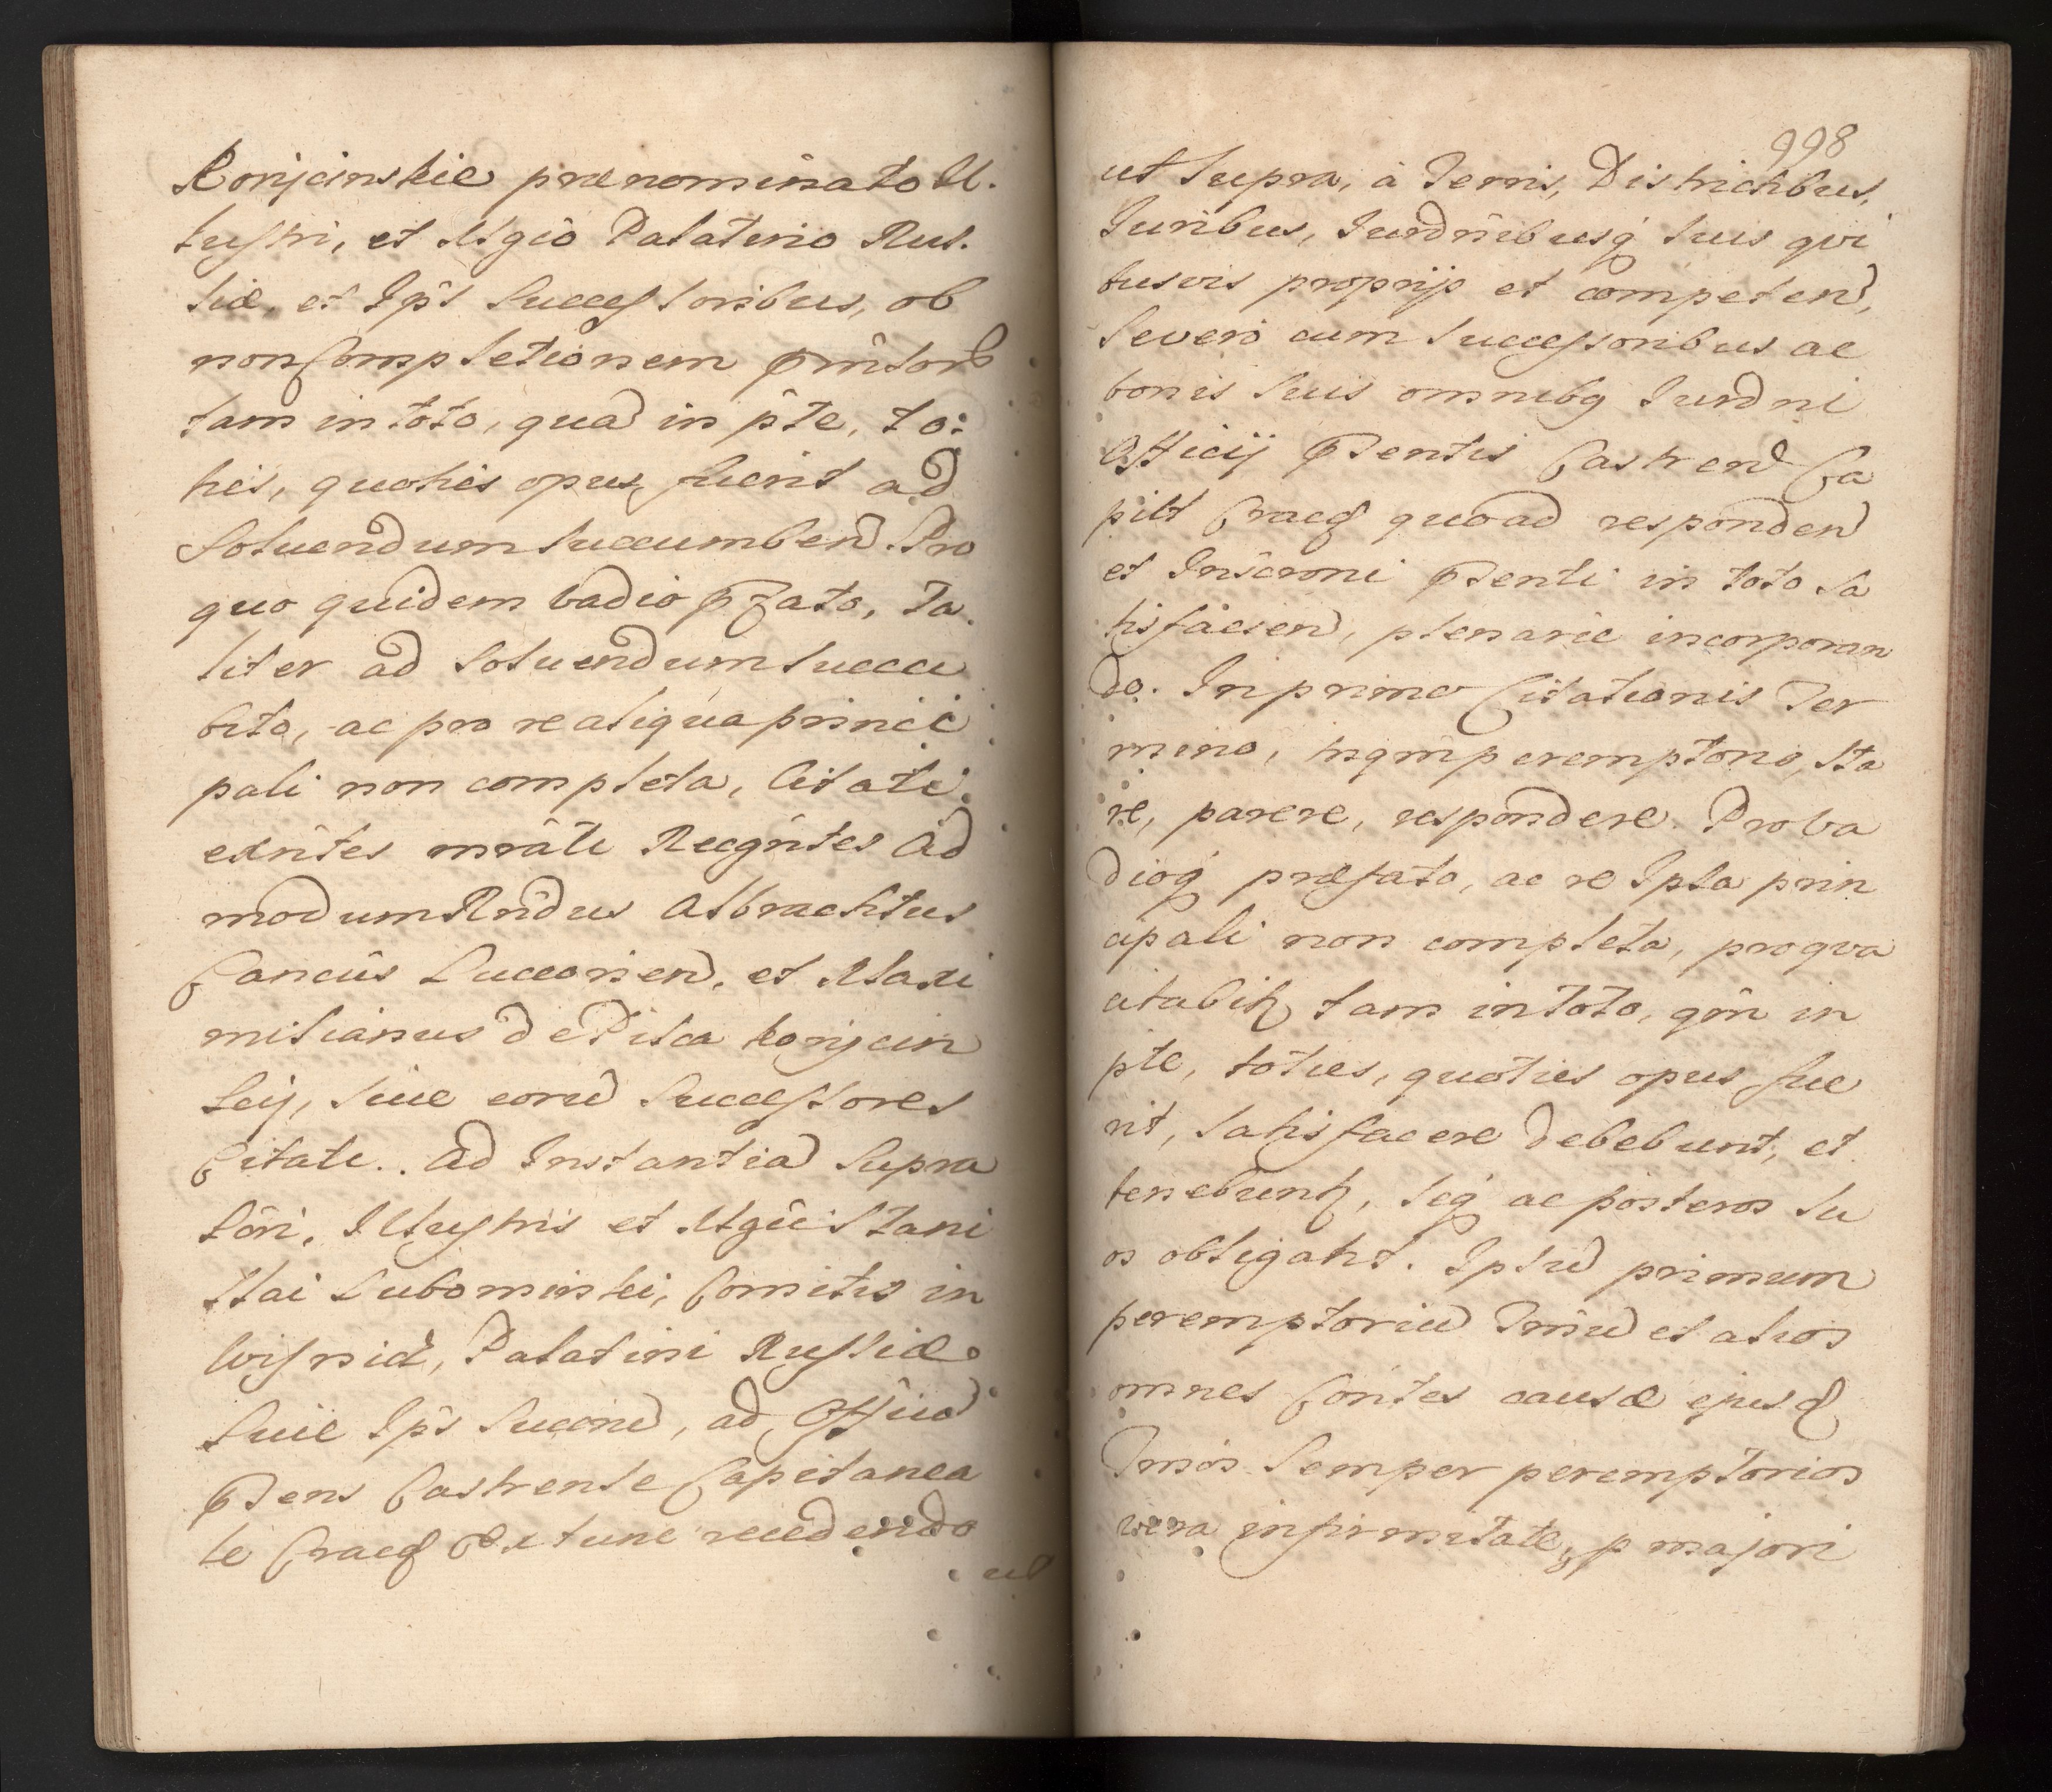 Konjcinskie prænominato Il.
lustri, et Mgco Palatino Rus.
siæ, et Ips Successoribus, ob
non Completionem prmtorũ
tam in toto, quã in pte, to:
ties, quoties opus fuerit ad
Solvendum succumbend. Pro
quo quidem vadio pfato, Ta.
liter ad Solvendum succu
bito, ac pro re aliqua princi
pali non completa, Citati
exñtes mrãli Recgñtes Ad
modum Rñdus Albrachtus
Cancûs Luceorien, et Maxi
milianus de Pilca Konjcin
scij, sive eorũ Successores
Citati.. Ad Instantiã Supra
tôri, Illustris et Mgci Stani
slai Lubomirski, Comitis in
Wisnic, Palatini Russiæ
Sive Ips Succorũ, ad Officiũ
pdens Castrense Capitanea
le Crac Ex tunc recedendo
ut
998
ut supra, à Terris, Districtibus,
Juribus, Jurdnibusq suis qvi
busvis proprijs et competen,
Se vero cum successoribus ac
bonis suis omnibq Jurdni
Officij pdentis Castren Ca
pilt Crac quoad responden
et Inscroni pdenti in toto sa
tisfacien, plenarie incorporan
do. In primo Citationis Ter
mino, tnqm peremptorio, sta
re, parere, respondere. Pro va
dioq præfato, ac re Ipsa prin
cipali non completa, pro qva
citabitr tam in toto, qm in
pte, toties, quoties opus fue
rit, satisfacere debebunt, et
tenebuntr, seq ac posteros su
os obligant. Ipsũ primum
peremptoriũ Tmñũ et alios
omnes Contes causæ ejusd
Tmños semper peremptorios
vera infirmitate, p majori